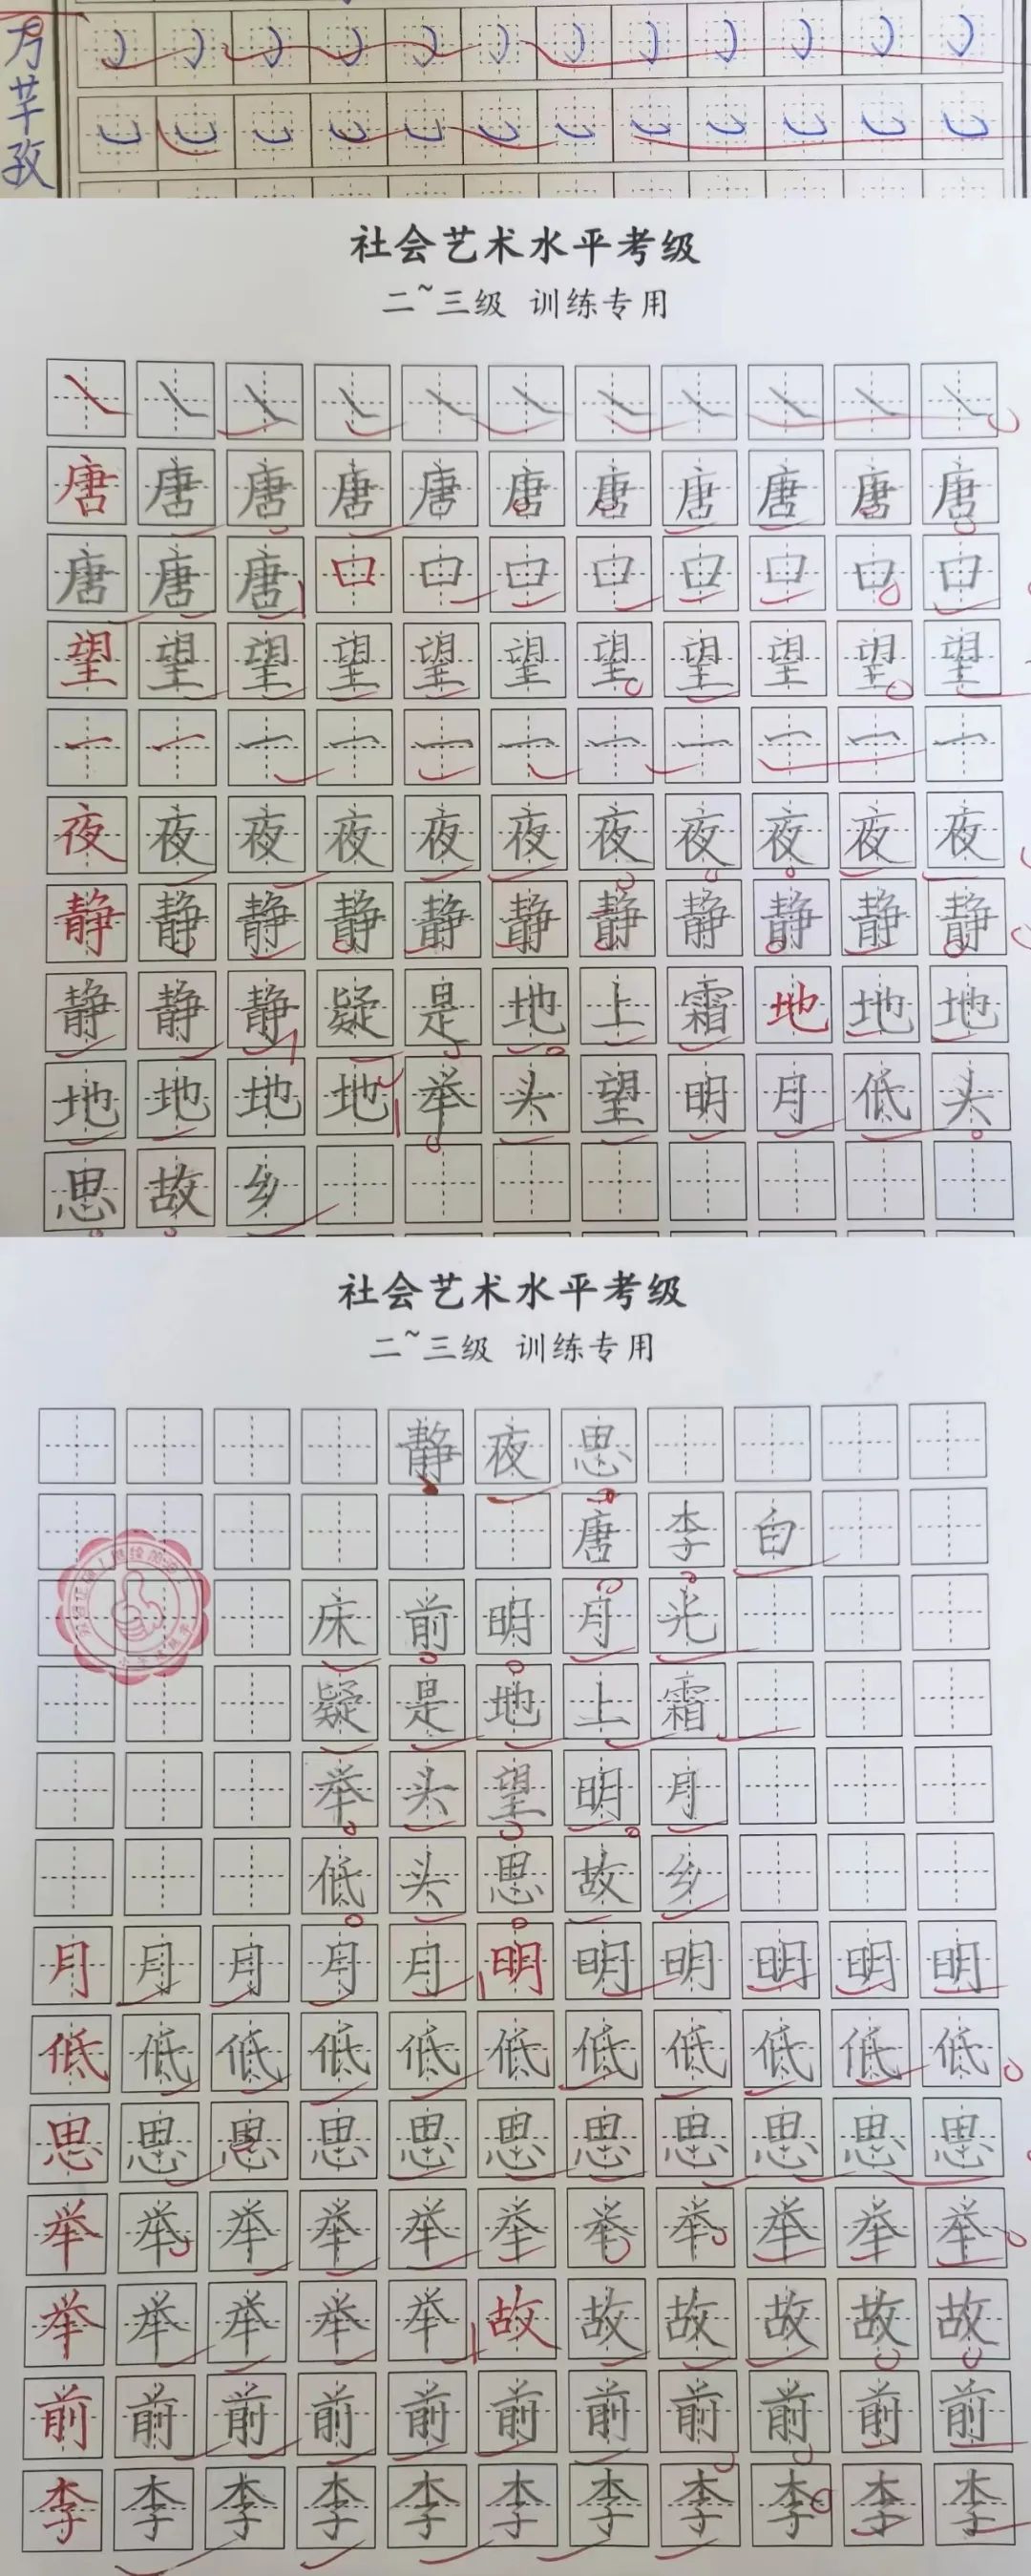 社会艺术水平考级
二~三级 训练专用
唐唐唐唐唐唐唐唐唐唐唐
唐唐唐口口口口口口口口
望望望望望望望望望望望
一一一一一一一一一一一
夜夜夜夜夜夜夜夜夜夜夜
静静静静静静静静静静静
静静静疑是地上霜地地地
地地地地举头望明月低头
思故乡
社会艺术水平考级
二~三级 训练专用
静夜思
唐李白
床前明月光
疑是地上霜
举头望明月
低头思故乡
月月月月月明明明明明明
低低低低低低低低低低低
思思思思思思思思思思思
举举举举举举举举举举举
举举举举举故故故故故故
前前前前前前前前前前前
李李李李李李李李李李李